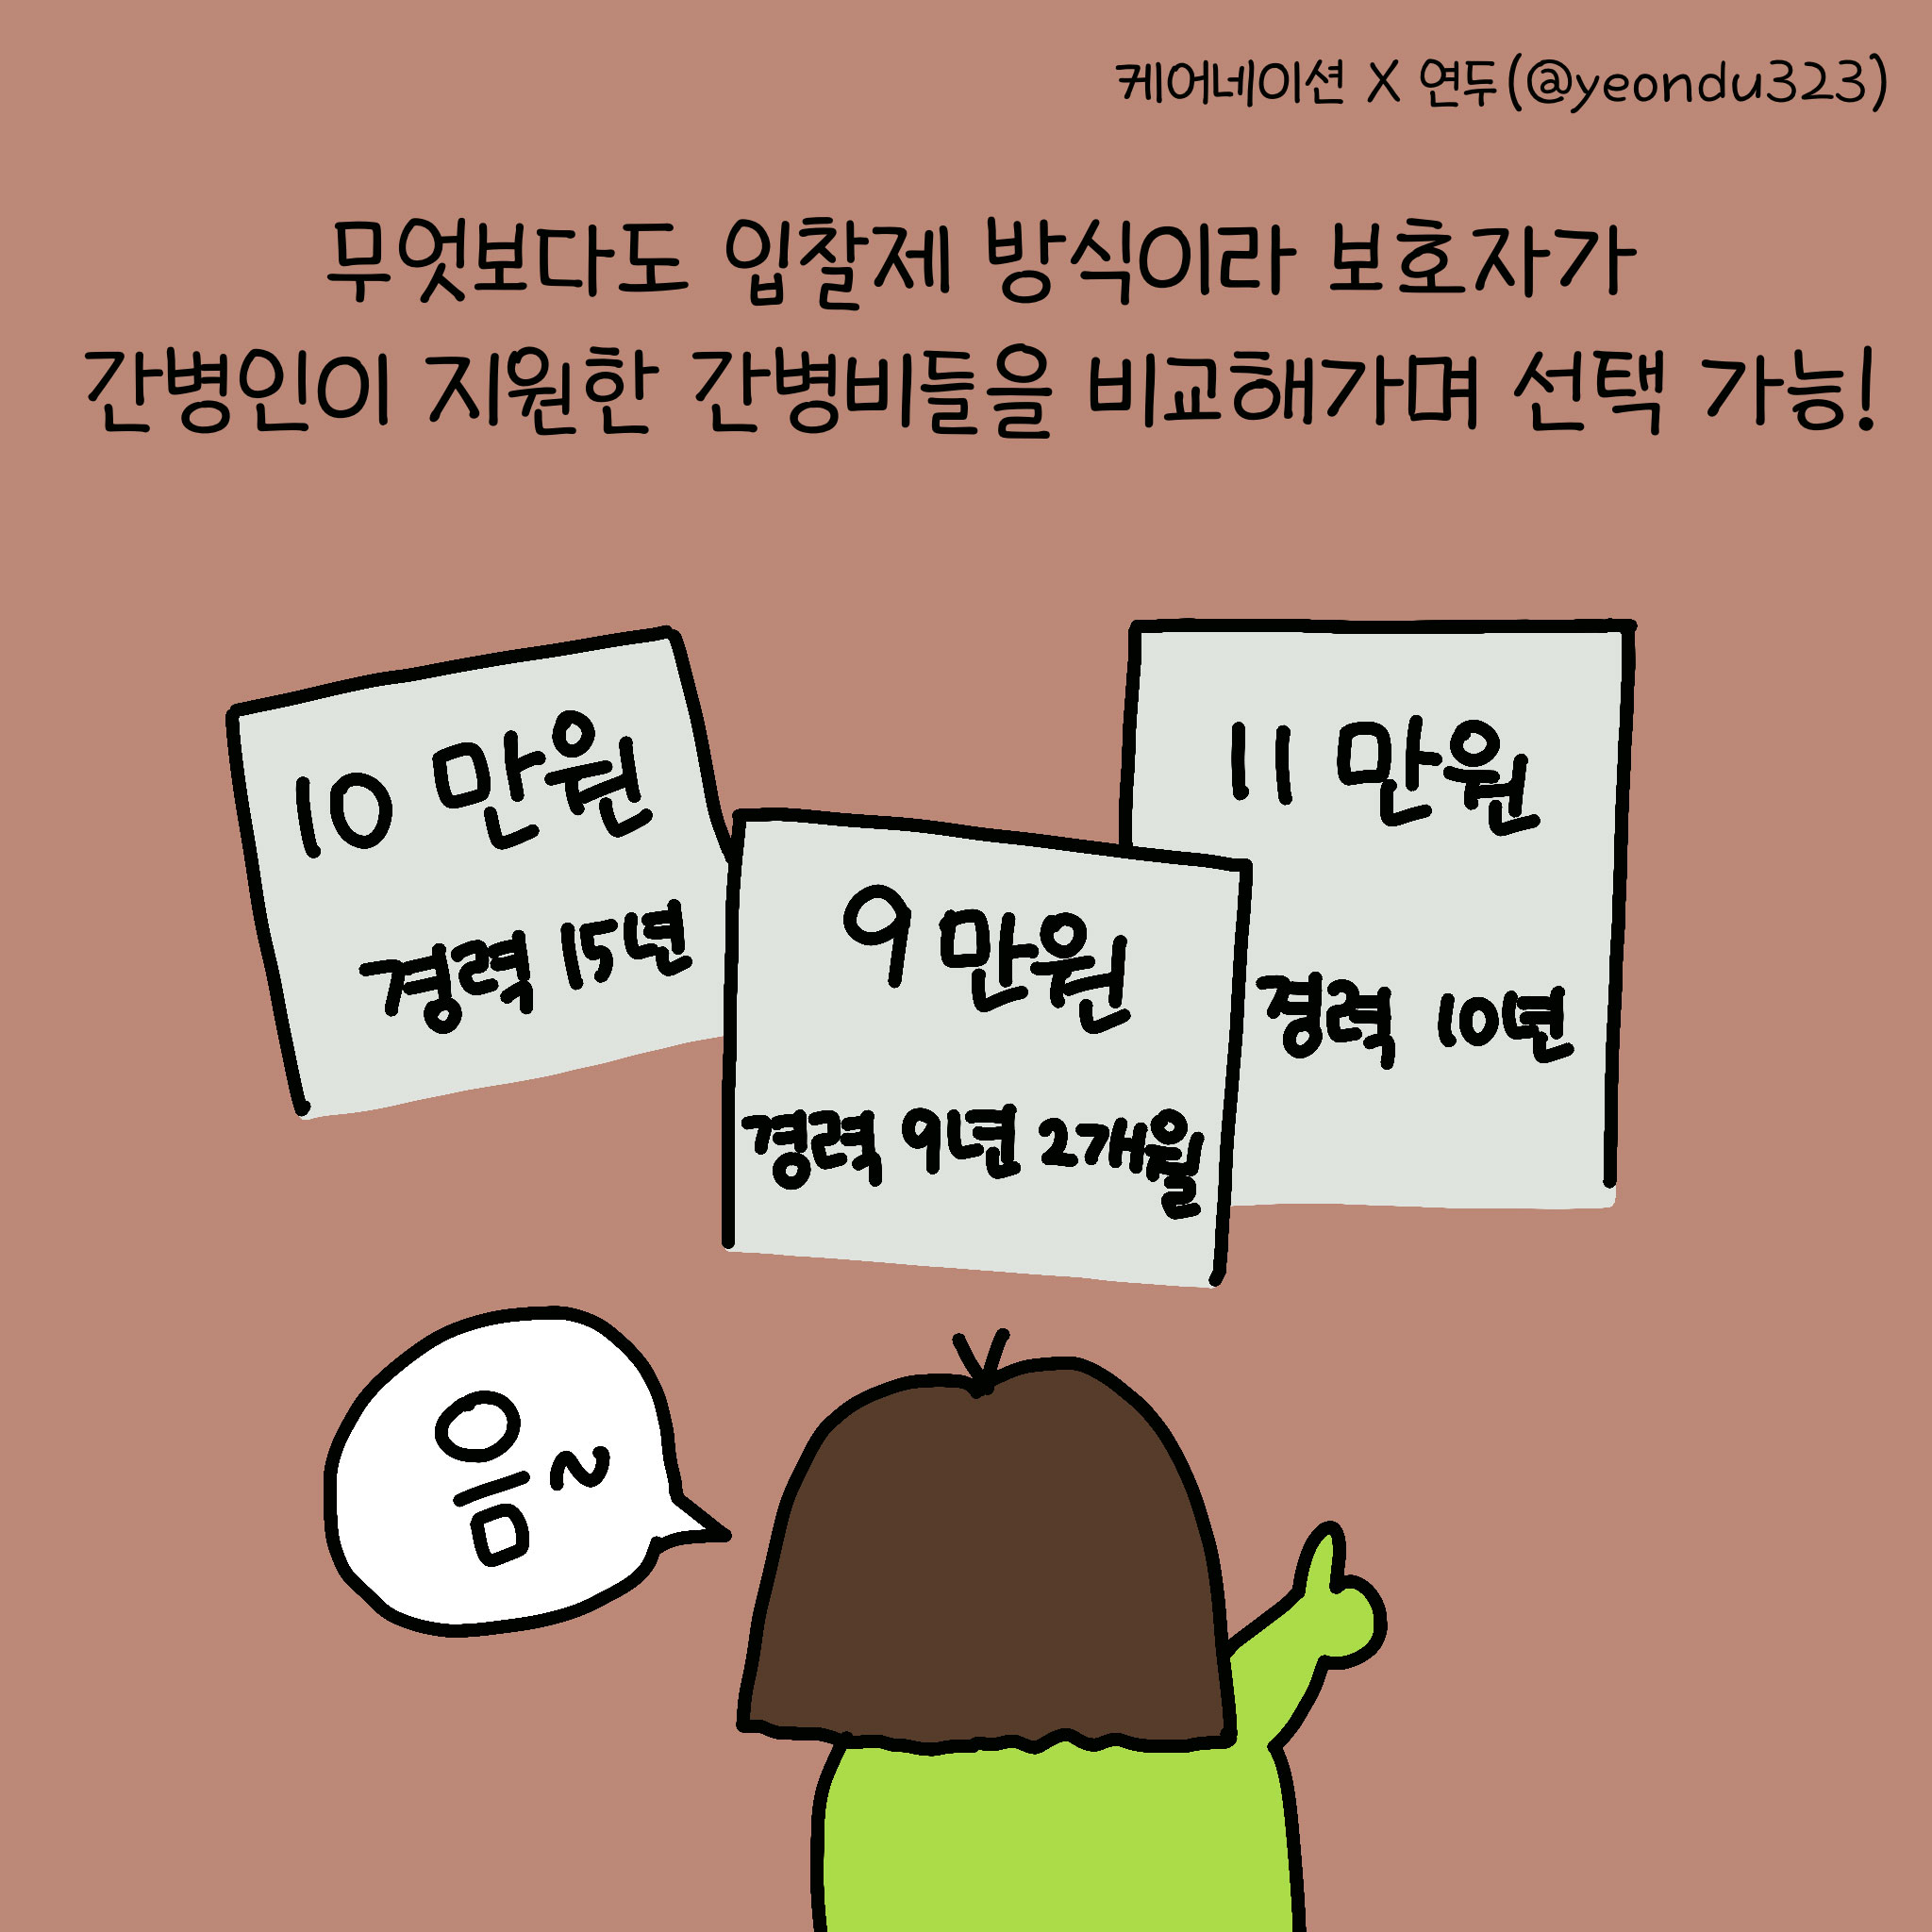 케어네이션 X 연두(@yeondu323)
무엇보다도 입찰제 방식이라 보호자가
간병인이 지원한 간병비들을 비교해가며 선택 가능!
10 만원
경력 15년
11 만원
경력 10년
9 만원
경력 9년 2개월
음~